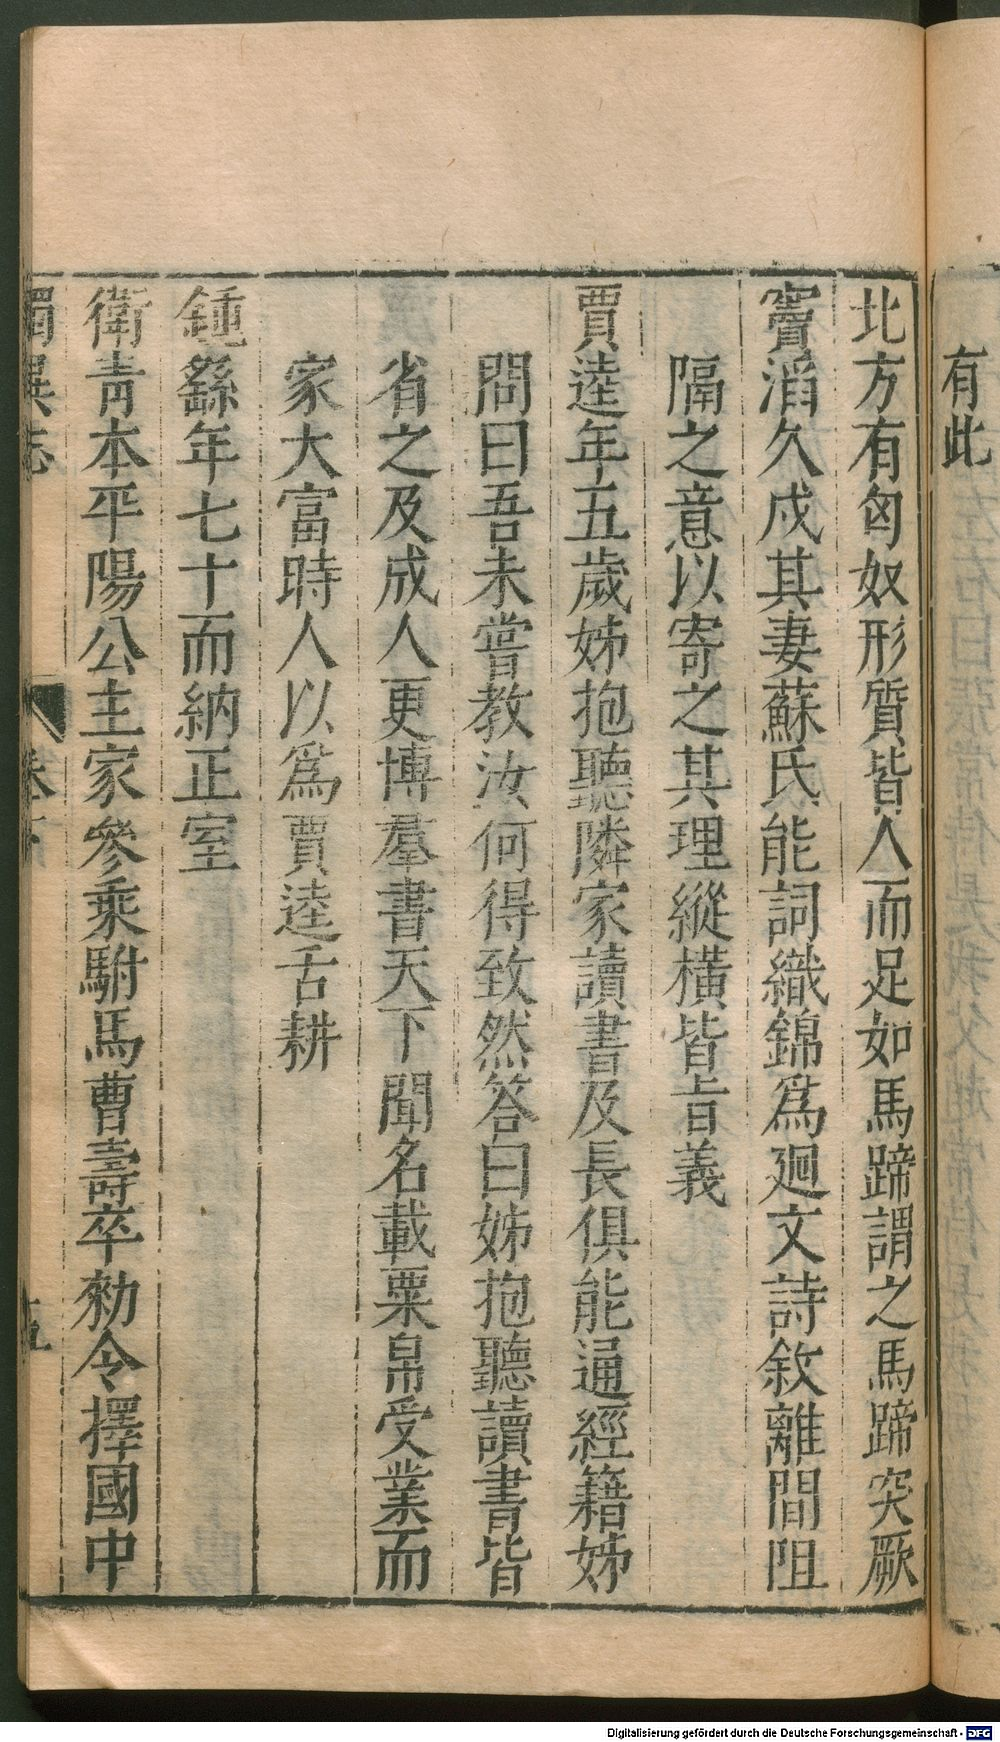 有此
北方有匈奴形質皆人而足如馬蹄謂之馬蹄突厥
竇滔久戍其妻蘇氏能詞織錦爲廻文詩敘離間阻
隔之意以寄之其理縱橫皆旨義
賈逵年五歲姊抱聽隣家讀書及長俱能通經籍姊
問曰吾未嘗教汝何得致然答曰姊抱聽讀書皆
省之及成人更博羣書天下聞名載粟帛受業而
家大富時人以爲賈逵舌耕
鍾繇年七十而納正室
衛青本平陽公主家參乘駙馬曹壽卒勑令擇國中
獨異志
卷下
五
Digitalisierung gefördert durch die Deutsche Forschungsgemeinschaft - DFG